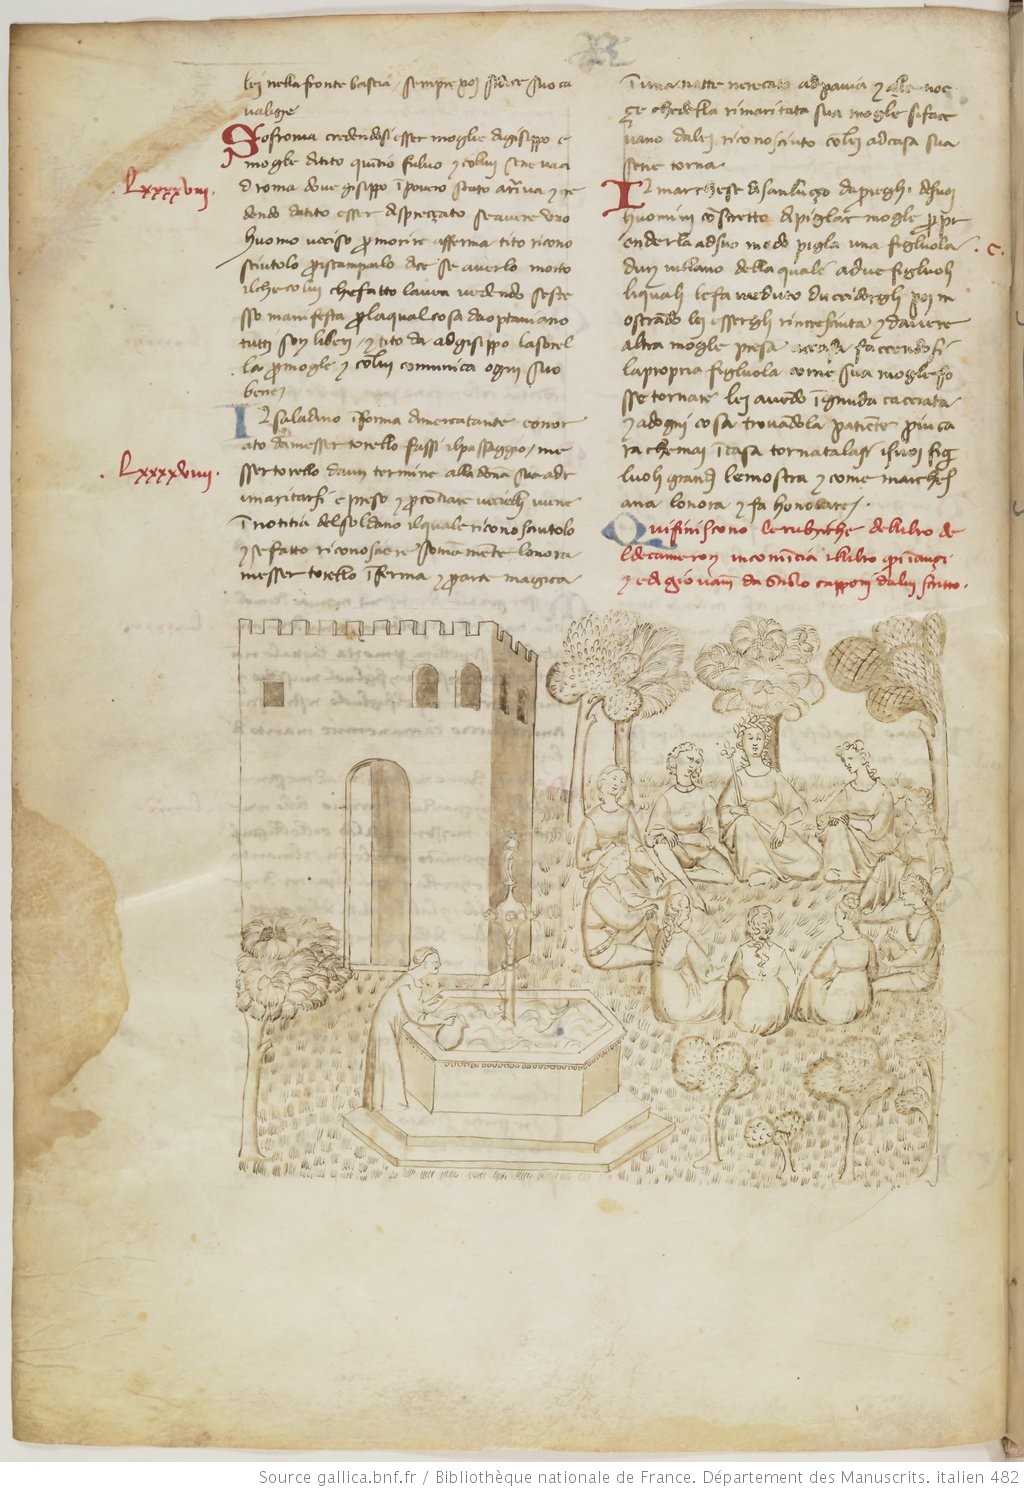 lei nella fronte bascia sempre poi fu suo ca
valiere
Sofronia credendosi esser moglie di gisippo e
moglie di tito quintio fulvo et collui sene va a
Lxxxxviii.
roma dove gisippo povero stato arriva et cre
dendo da tito esser disprezzato se avere uno
huomo ucciso per morire afferma tito ricono
sciutolo per iscamparlo dice se averlo morto
il che colui che fatto laveva vedendo se ste
sso manifesta per la qual cosa da optaviano
tutti son liberi et tito da ad gisippo la sorel
la per moglie et collui comunica ogni suo
bene
Il saladino in forma di mercatante e onor
ato da messer torello fassi il passaggio me
Lxxxxviiii.
sser torello da un termine alla donna sua ad r
imaritarsi e preso et per conciare uccielli viene
in notitia del soldano il quale riconosciutolo
et se fatto riconosciere sommamente lonora
messer torello inferma et per arte magica
in una notte ne recato ad pavia et alle noç
çe che della rimaritata sua moglie si face
vano da lei riconosciuto collei ad casa sua
sene torna
Il marchese di sanluzzo da prieghi de suoi
huomini costretto di pigliar moglie per pr
enderla ad suo modo piglia una figluola
.C.
dun villano della quale a due figluoli
li quali le fa veduto duccidergli poi m
ostrando lei essergli rincresciuta et davere
altra moglie presa ad casa faccendosi
la propria figluola come sua moglie fo
sse tornare lei avendo ignuda cacciata
et ad ogni cosa trovandola patiente piu ca
ra che mai in casa tornatalasi i suoi fig
luoli grandi le mostra et come marches
ana lonora et fa honorare.
Qui finiscono le rubriche de libro de
l decameron incomincia il libro
et e di giovanni capponi scritto.
Source gallica.bnf.fr / Bibliothèque nationale de France. Département des Manuscrits. italien 482